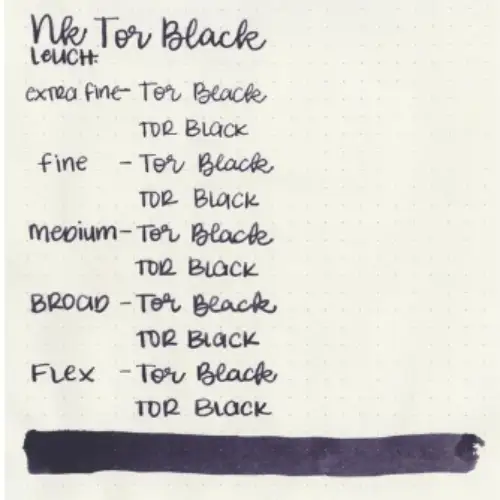 Nk Tor Black
LEUCHT:
extra fine - Tor Black
TOR BLACK
fine - Tor Black
TOR BLACK
medium - Tor Black
TOR BLACK
BROAD - Tor Black
TOR BLACK
FLEX - Tor Black
TOR BLACK